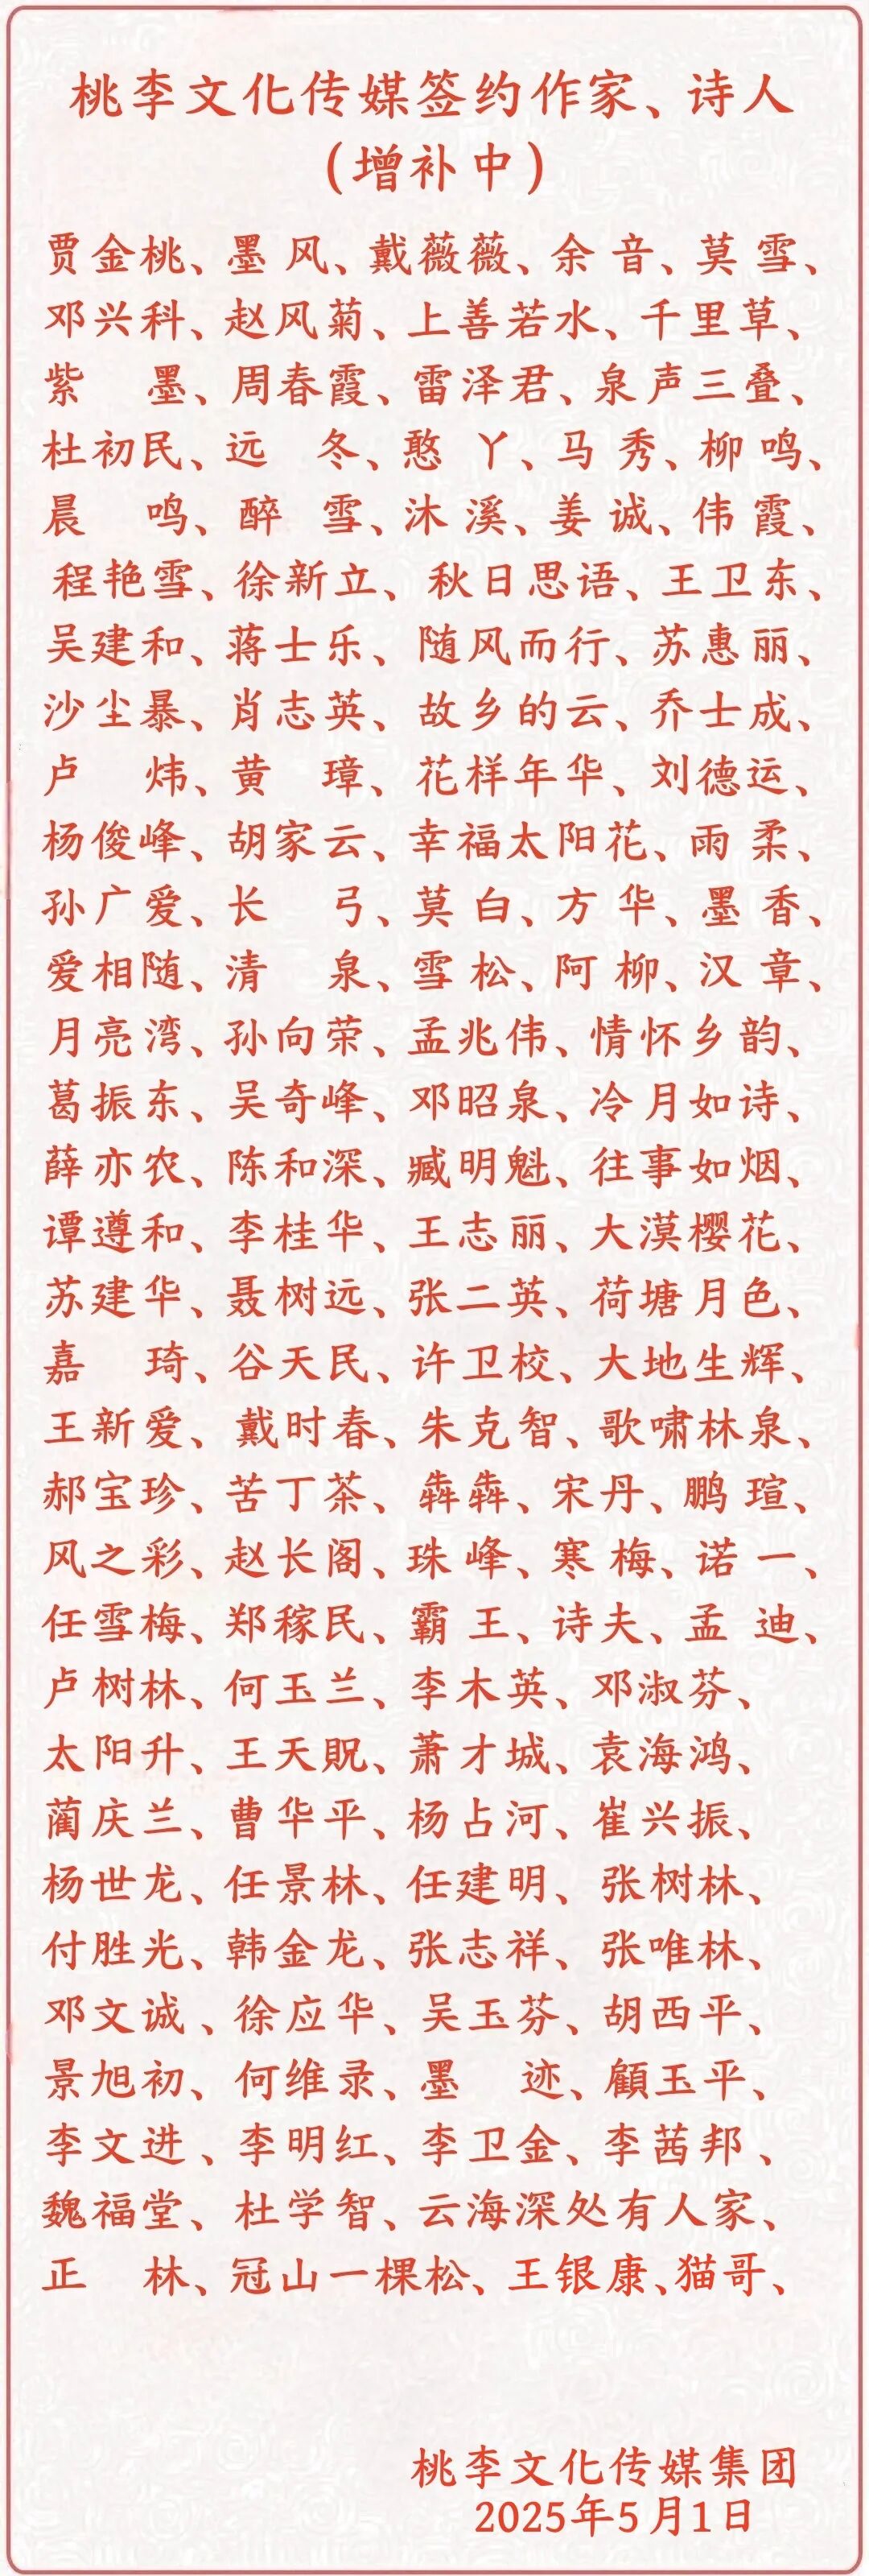 桃李文化传媒签约作家、诗人
(增补中)
贾金桃、墨风、戴薇薇、余音、莫雪、
邓兴科、赵风菊、上善若水、千里草、
紫墨、周春霞、雷泽君、泉声三叠、
杜初民、远冬、憨丫、马秀、柳鸣、
晨鸣、醉雪、沐溪、姜诚、伟霞、
程艳雪、徐新立、秋日思语、王卫东、
吴建和、蒋士乐、随风而行、苏惠丽、
沙尘暴、肖志英、故乡的云、乔士成、
卢炜、黄璋、花样年华、刘德运、
杨俊峰、胡家云、幸福太阳花、雨柔、
孙广爱、长弓、莫白、方华、墨香、
爱相随、清泉、雪松、阿柳、汉章、
月亮湾、孙向荣、孟兆伟、情怀乡韵、
葛振东、吴奇峰、邓昭泉、冷月如诗、
薛亦农、陈和深、臧明魁、往事如烟、
谭遵和、李桂华、王志丽、大漠樱花、
苏建华、聂树远、张二英、荷塘月色、
嘉琦、谷天民、许卫校、大地生辉、
王新爱、戴时春、朱克智、歌啸林泉、
郝宝珍、苦丁茶、犇犇、宋丹、鹏瑄、
风之彩、赵长阁、珠峰、寒梅、诺一、
任雪梅、郑稼民、霸王、诗夫、孟迪、
卢树林、何玉兰、李木英、邓淑芬、
太阳升、王天贶、萧才城、袁海鸿、
蔺庆兰、曹华平、杨占河、崔兴振、
杨世龙、任景林、任建明、张树林、
付胜光、韩金龙、张志祥、张唯林、
邓文诚、徐应华、吴玉芬、胡西平、
景旭初、何维录、墨迹、顧玉平、
李文进、李明红、李卫金、李茜邦、
魏福堂、杜学智、云海深处有人家、
正林、冠山一棵松、王银康、猫哥、
桃李文化传媒集团
2025年5月1日